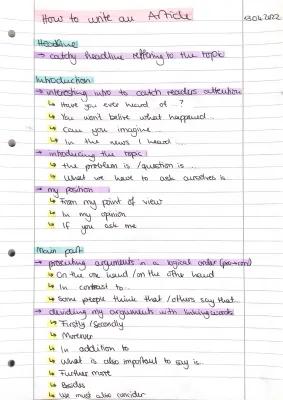 How to write an Article
13.04.2022
Headline
→ catchy headline reffering to the topic
Introduction
→ interesting intro to catch readers attention
↳ Have you ever heard of...?
↳ You won't belive what happened...
↳ Can you imagine...
↳ In the news I heard...
→ introducing the topic
↳ the problem is / question is...
↳ What we have to ask ourselves is...
→ my position
↳ From my point of view
↳ In my opinion
↳ If you ask me
Main part
→ presenting arguments in a logical order (pro→con)
↳ On the one hand / on the other hand
↳ In contrast to...
↳ Some people think that / others say that...
→ dividing my arguments with linking words
↳ Firstly / Secondly
↳ Moreover
↳ In addition to
↳ What is also important to say is...
↳ Further more
↳ Besides
↳ We must also consider